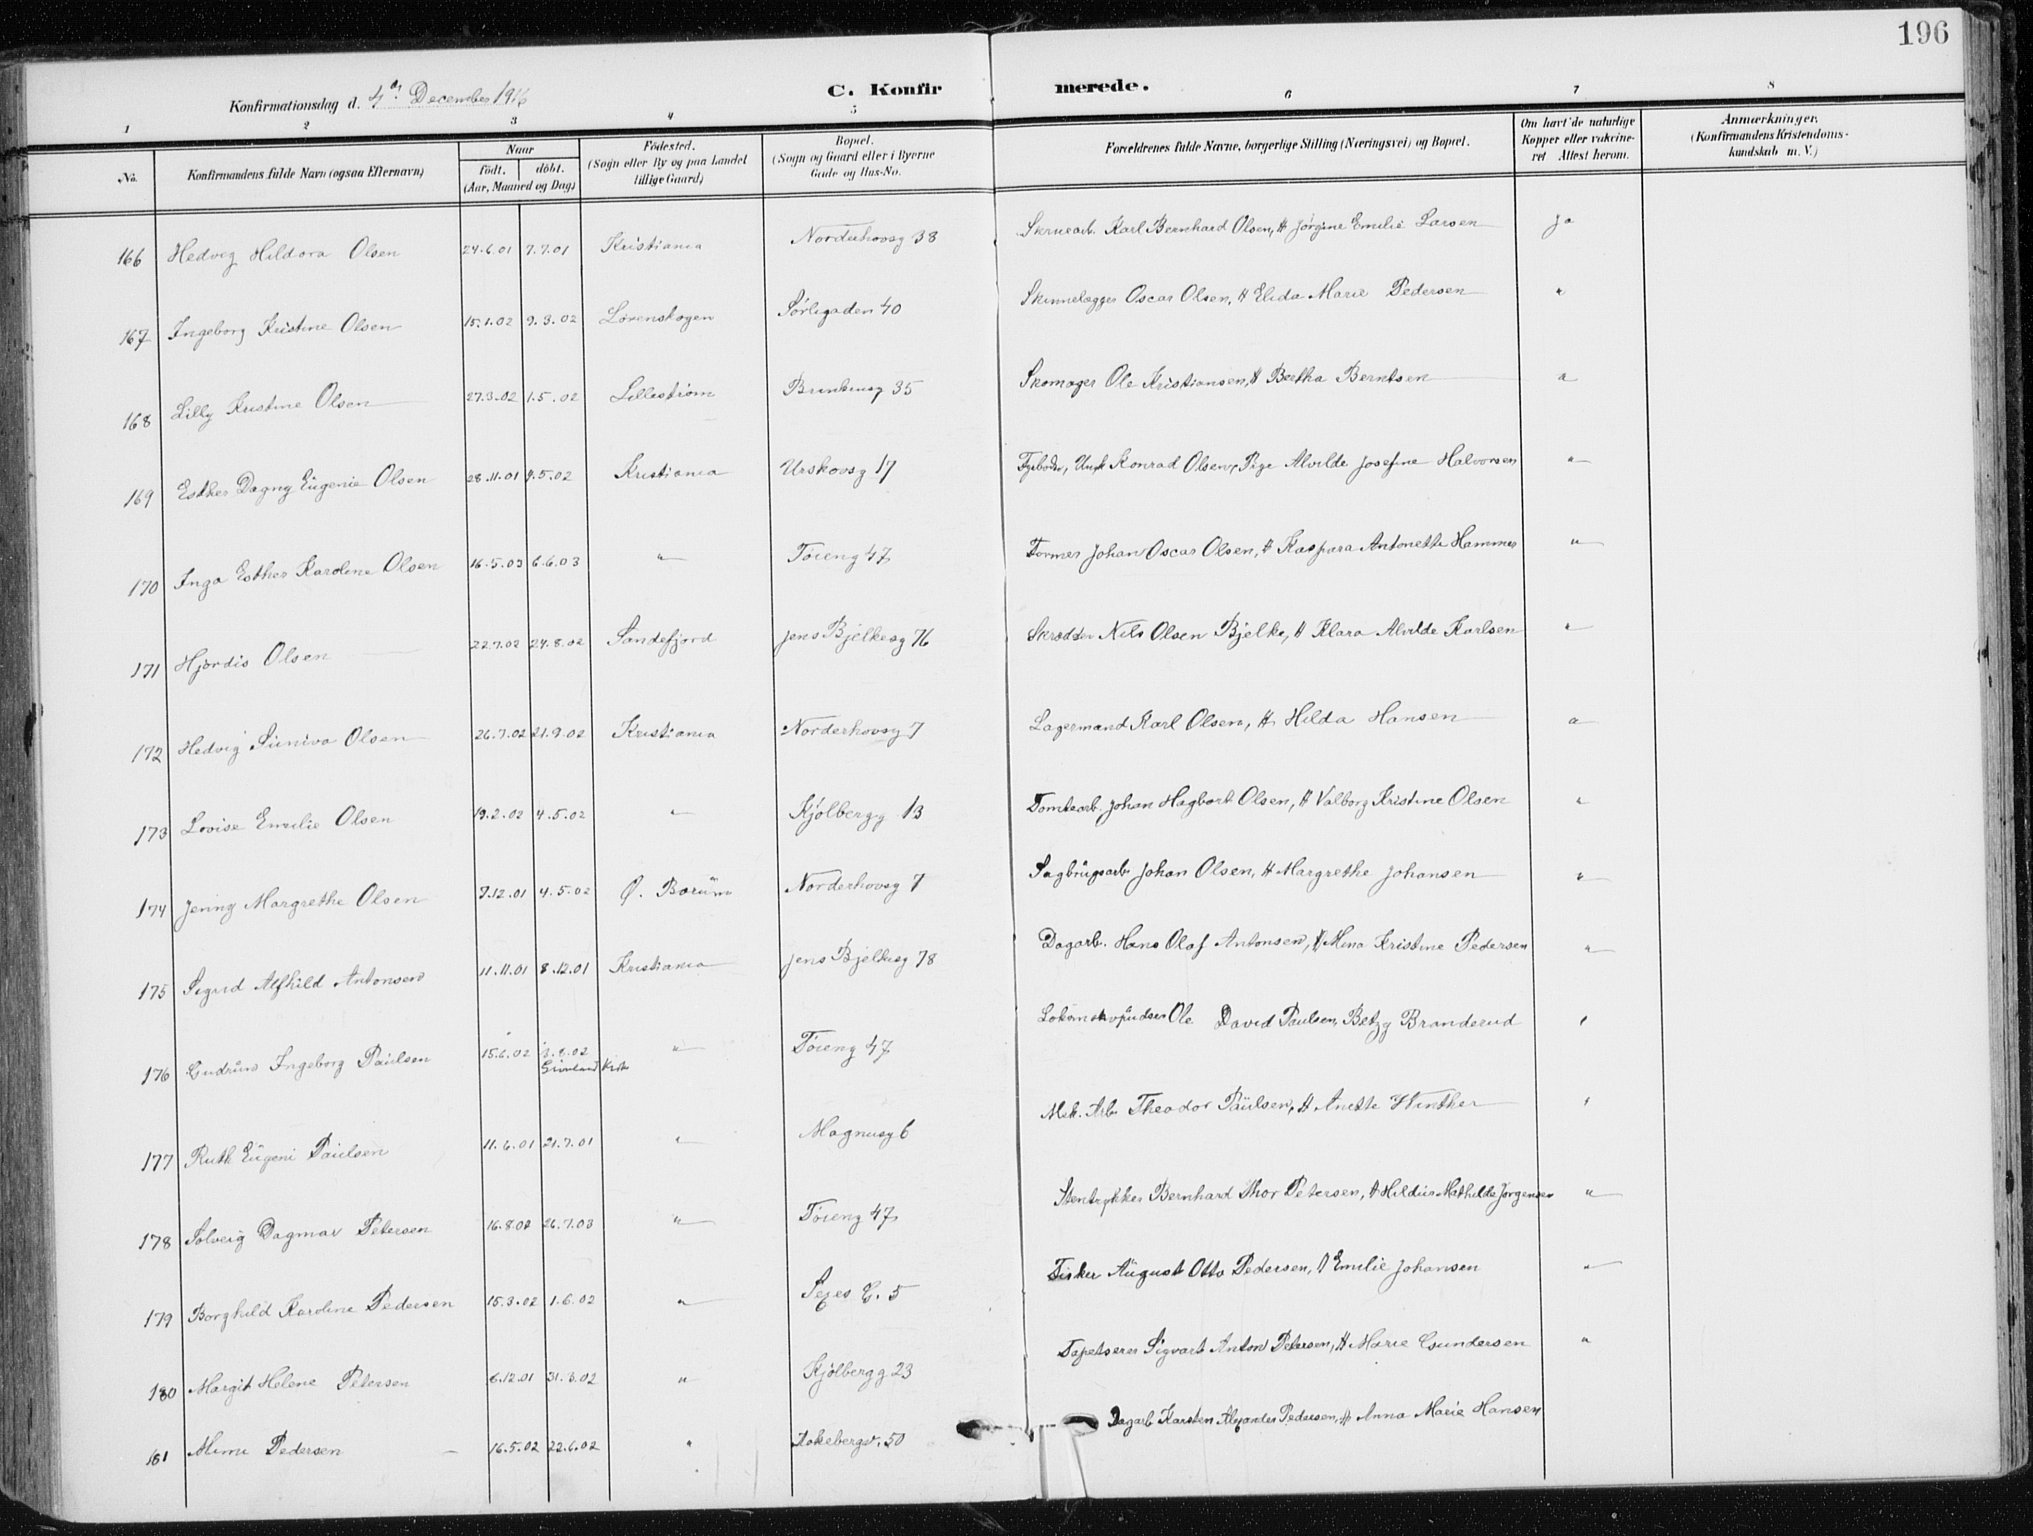 196
Konfirmationsdag d. 4de December 1916 C. Konfirmerede.
1 2 3 4 5 6 7 8
No. Konfirmandens fulde Navn (ogsaa Efternavn) Naar født. døbt. (Aar, Maaned og Dag) Fødested. (Sogn eller By og paa Landet tillige Gaard) Bopæl. (Sogn og Gaard eller i Byerne Gade og Hus-No. Forældrenes fulde Navne, borgerlige Stilling (Næringsvei) og Bopæl. Om havt de naturlige Kopper eller vakcineret Attest herom. Anmærkninger. (Konfirmandens Kristendomskundskab m. V.)
166 Hedvig Hildora Olsen 24.6.01 7.7.01 Kristiania Norderhovsg 38 Skruearb. Karl Bernhard Olsen, H Jørgine Emilie Larsen ja
167 Ingeborg Kristine Olsen 15.1.02 9.3.02 Lørenskogen Sørligaden 40 Skinnelægger Oscar Olsen, H Elida Marie Pedersen "
168 Lilly Kristine Olsen 27.3.02 1.5.02 Lillestrøm 35 Skomager Ole Kristiansen, H Bertha Berntsen "
169 Esther Dagny Eugenie Olsen 28.11.01 4.5.02 Kristiania Urskovsg 17 Fyrbøder, Konrad Olsen, Pige Alvilde Josefine Halvorsen "
170 Inga Esther Karoline Olsen 16.5.03 6.6.03 " Tøieng 47 Former Johan Oscar Olsen, H Kaspara Antonette Hammer "
171 Hjørdis Olsen 22.7.02 24.8.02 Sandefjord Jens Bjelkesg 76 Skrædder Nils Olsen Bjelke, H Klara Alvilde Karlsen "
172 Hedvig Suniva Olsen 26.7.02 21.9.02 Kristiania Norderhovsg 7 Lagermand Karl Olsen, H Hilda Hansen "
173 Lovise Emilie Olsen 19.2.02 4.5.02 " Kjølbergg 13 Tomtearb. Johan Hagbart Olsen, H Valborg Kristine Olsen "
174 Jenny Margrethe Olsen 7.12.01 4.5.02 Ø. Bærum Norderhovsg 7 Sagbrugsarb. Johan Olsen, H Margrethe Johansen "
175 Sigrid Alfhild Antonsen 11.11.01 8.12.01 Kristiania Jens Bjelkesg 78 Dagarb. Hans Olaf Antonsen, H Mina Kristine Pedersen "
176 Gudrun Ingeborg Paulsen 15.6.02 .02 " Tøieng 47 Ole David Paulsen, Betzy Branderud "
Grønland Kirke
177 Ruth Eugeni Paulsen 11.6.01 21.7.01 " Magnusg 6 Mek. Arb. Theodor Paulsen, H Anette Winther "
178 Solveig Dagmar Petersen 16.8.02 26.7.03 " Tøieng 47 Stentrykker Bernhard Thor Petersen, H Mathilde Jørgensen "
179 Borghild Karoline Pedersen 15.3.02 1.6.02 " Sexes G. 5 Fisker August Otto Pedersen, H Emilie Johansen "
180 Margit Helene Petersen 6.12.01 31.3.02 " Kjølbergg 23 Tapetserer Sigvart Anton Petersen, H Marie Gundersen "
181 Mimi Pedersen 16.5.02 22.6.02 " 50 Dagarb Karsten Alexander Pedersen, H Anna Marie Hansen